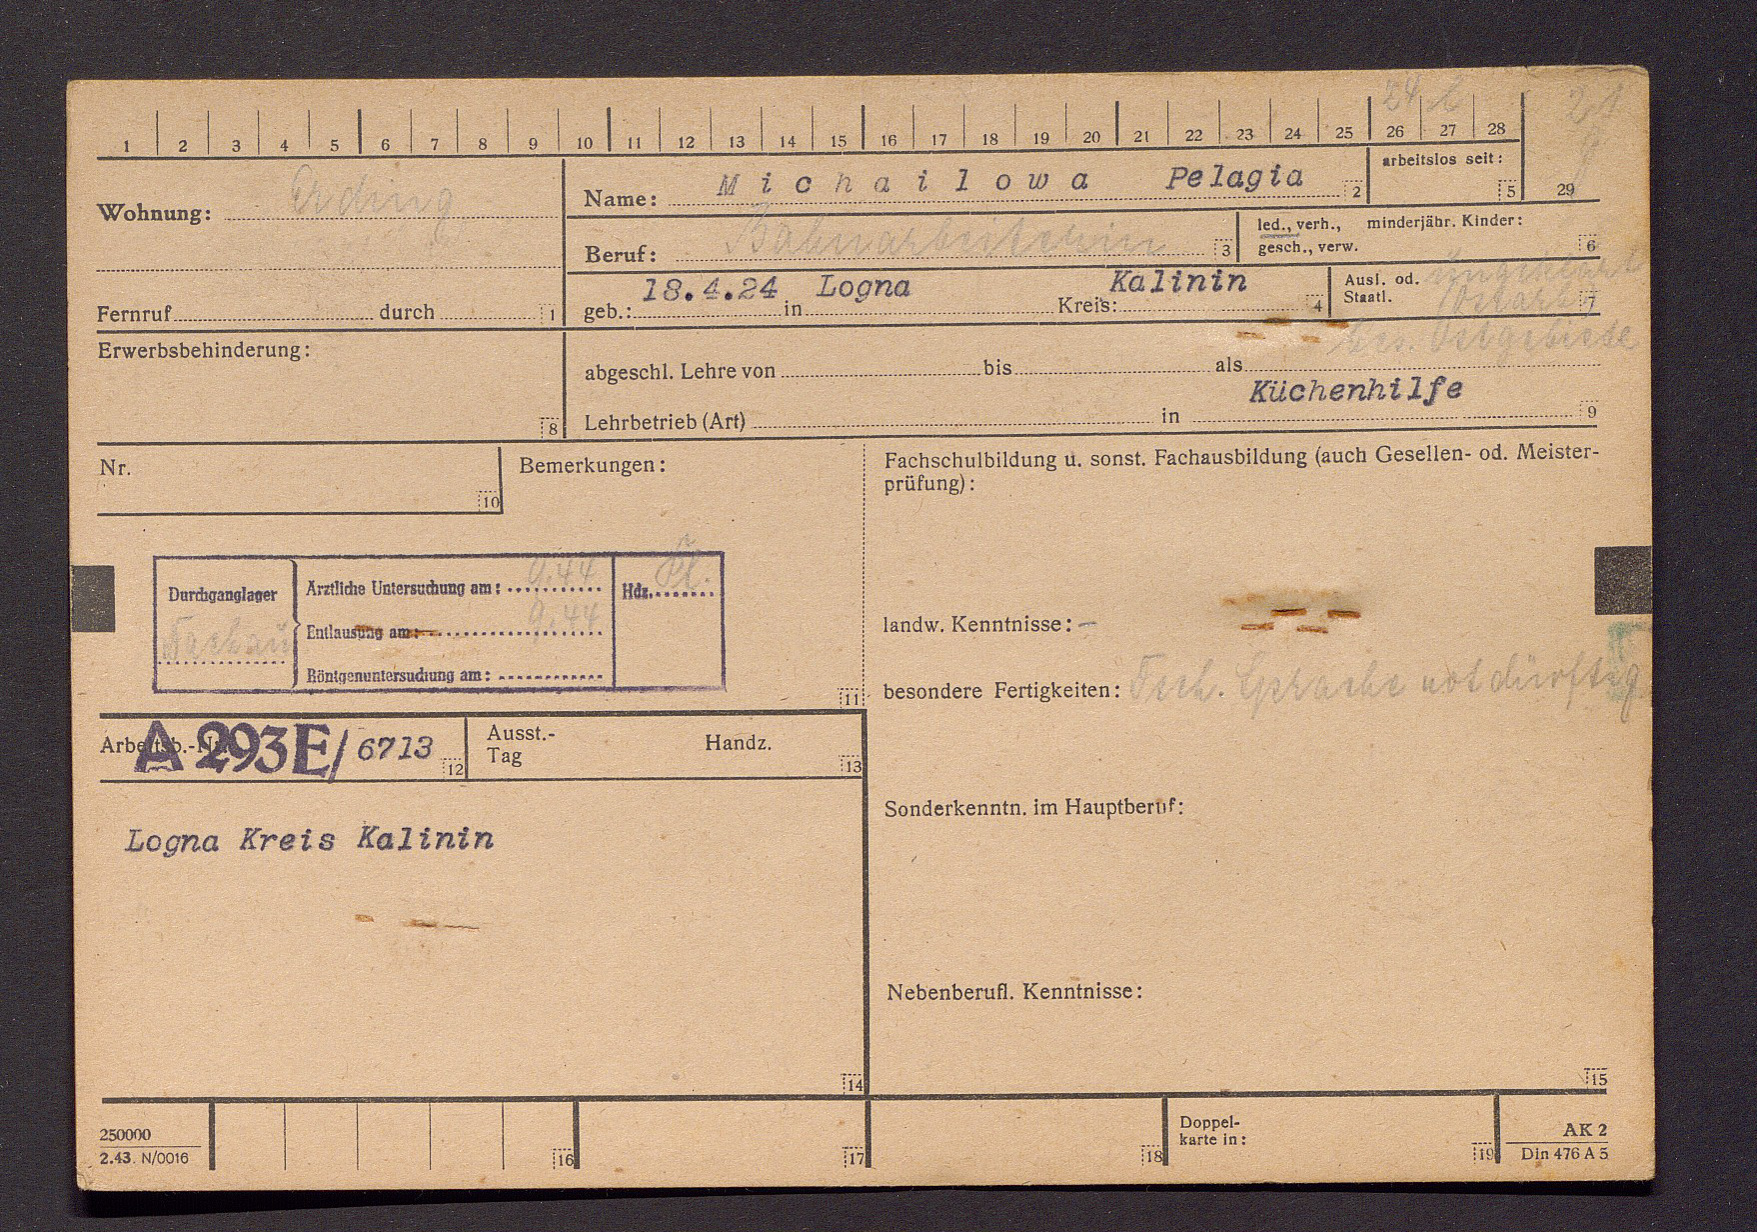 24 b 21
1 2 3 4 5 6 7 8 9 10 11 12 13 14 15 16 17 18 19 20 21 22 23 24 25 26 27 28
29
Wohnung: Erding
Fernruf durch 1
Name: Michailowa Pelagia 2
arbeitslos seit: 5
Beruf: Bahnarbeiterin 3
led., verh., minderjähr. Kinder:
gesch., verw. 6
geb.: 18.4.24 in Logna Kreis: Kalinin 4
Ausl. od. ungeklärt
Staatl. Ostarb. 7
bes. Ostgebiete
Erwerbsbehinderung: 8
abgeschl. Lehre von bis als
Küchenhilfe
Lehrbetrieb (Art) in 9
Nr. 10
Bemerkungen:
Durchganglager
Dachau
Arztliche Untersuchung am: 9.44
Entlausung am: 9.44
Röntgenuntersuchung am:
Hdz.
11
Fachschulbildung u. sonst. Fachausbildung (auch Gesellen- od. Meister-
prüfung):
landw. Kenntnisse: –
besondere Fertigkeiten: Sprache notdürftig
Arbeitsb.-Nr. A 293E/ 6713 12
Ausst.-
Tag Handz. 13
Logna Kreis Kalinin
14
Sonderkenntn. im Hauptberuf:
Nebenberufl. Kenntnisse:
15
250000
2.43. N/0016
16
17
18
Doppel-
karte in: 19
AK 2
Din 476 A 5